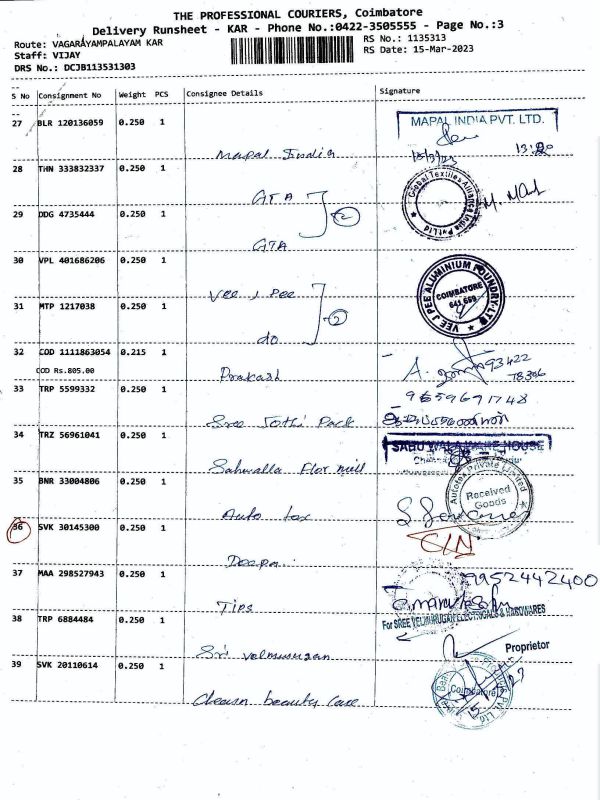 THE PROFESSIONAL COURIERS, Coimbatore
Delivery Runsheet - KAR - Phone No.:0422-3505555 - Page No.:3
Route: VAGARAYAMPALAYAM KAR
RS No.: 1135313
Staff: VIJAY
RS Date: 15-Mar-2023
DRS No.: DCJB113531303
S No Consignment No Weight PCS Consignee Details Signature
27 BLR 120136059 0.250 1
MAPAL INDIA PVT. LTD.
Mapal India
15/3/23
28 THN 333832337 0.250 1
GTA
Global Textiles Alliance India Pvt Ltd
29 DDG 4735444 0.250 1
2
GTA
30 VPL 401686206 0.250 1
Vee J Pee
VEE J PEE ALUMINIUM FOUNDRY-LTD
COIMBATORE
641 659
31 MTP 1217038 0.250 1
2
do
32 COD 1111863054 0.215 1
COD Rs.805.00
Prakash
A.
93422
78306
33 TRP 5599332 0.250 1
9659691748
Sree Jothi Pack
34 TRZ 56961041 0.250 1
SAHUWALA WARE HOUSE
Sahwalla Flor mill
35 BNR 33004806 0.250 1
Autotex Private Limited
Received
Goods
Auto tax
36 SVK 30145300 0.250 1
Deepa
37 MAA 298527943 0.250 1
9952442400
Tips
38 TRP 6884484 0.250 1
For SREE VELMURUGAN ELECTRICALS & HARDWARES
Sri velmurugan
Proprietor
39 SVK 20110614 0.250 1
Coimbatore
Cleawn beauty care